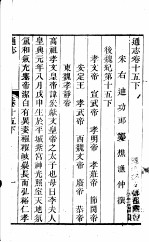 通志卷十五下
宋右迪功郎鄭樵漁仲撰
後魏紀第十五下
孝文帝 宣武帝 孝明帝 孝莊帝 節閔帝
安定王 孝武帝 西魏文帝 廢帝 恭帝
東魏孝靜帝
高祖孝文皇帝諱宏獻文皇帝之太子也母曰李夫人
皇興元年八月戊申生於平城紫宮神光照室天地氛
氳和氣充塞帝潔白有異姿襁褓岐嶷長而弘裕仁孝